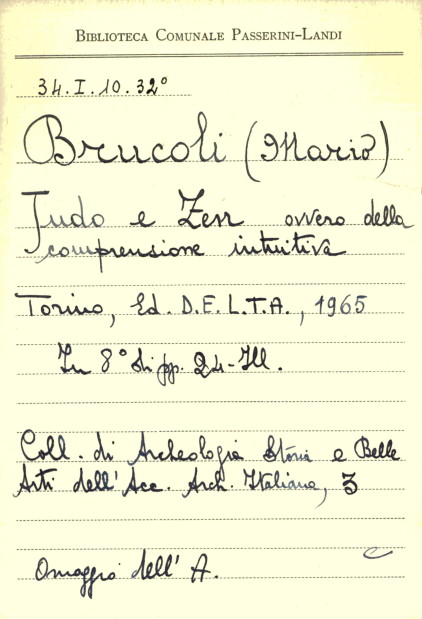 BIBLIOTECA COMUNALE PASSERINI-LANDI
34.I.10.32°
Brucoli (Mario)
Judo e Zen ovvero della
comprensione intuitiva
Torino, Ed. D.E.L.T.A., 1965
In 8° di pp. 24-Ill.
Coll. di Archeologia Storia e Belle
Arti dell'Acc. Arch. Italiana, 3
Omaggio dell'A.